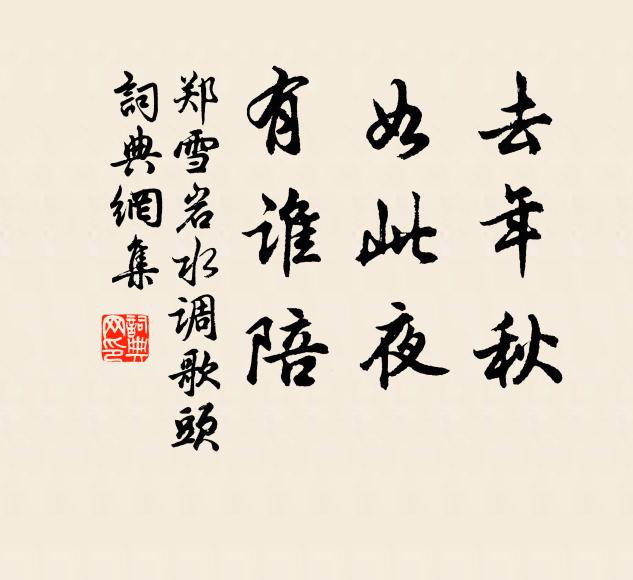 去年秋
如此夜
有谁陪
郑雪岩水调歌頭
詞典網集
詞典网印